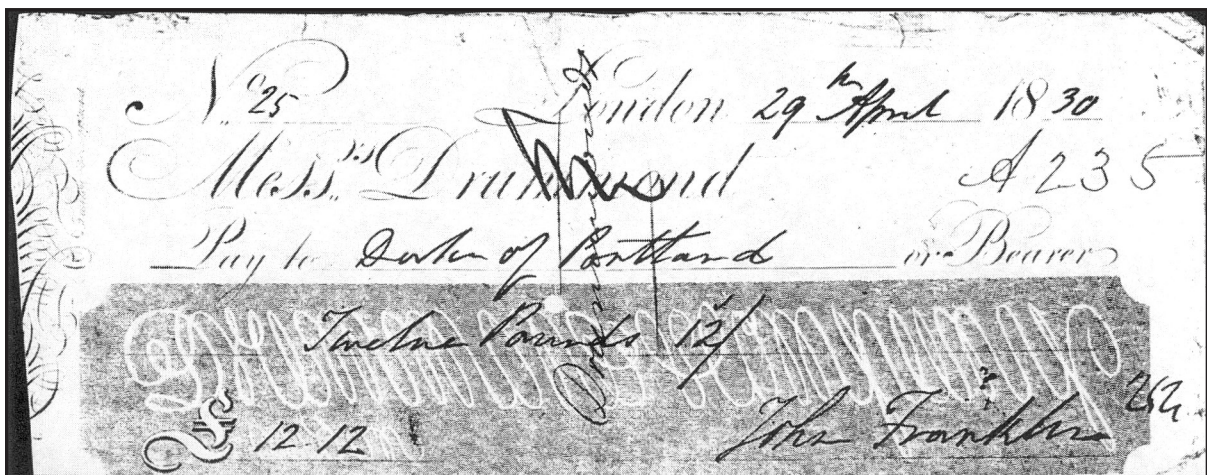 No. 25 London 29th April 1830
Messrs. Drummond A 235
Pay to Duke of Portland or Bearer
Twelve Pounds 12/
£ 12 12 John Franklin